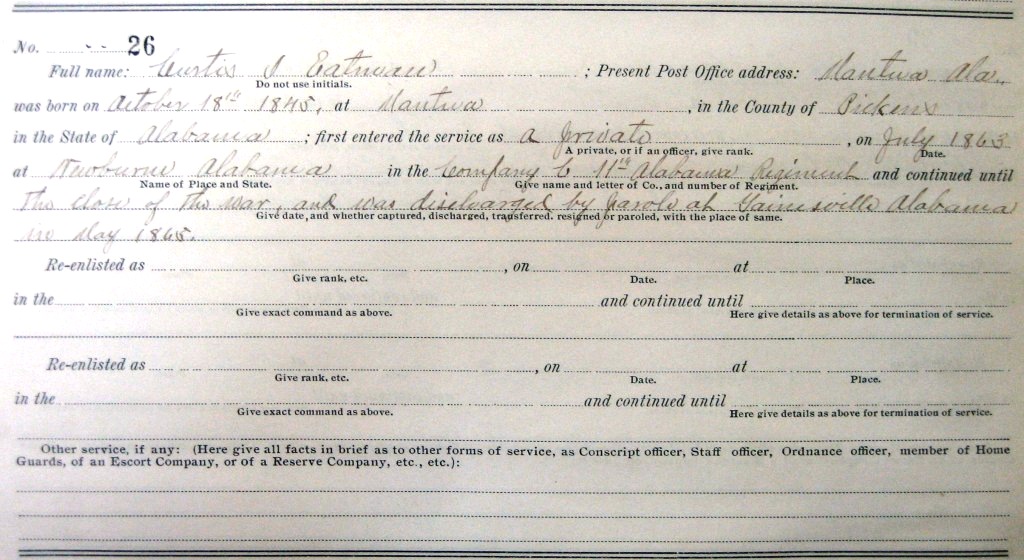 No. 26
Full name: Curtis J Eatman ; Present Post Office address: Mantua Ala.,
Do not use initials.
was born on October 18th 1845, at Mantua , in the County of Pickens
in the State of Alabama ; first entered the service as a private , on July 1863
A private, or if an officer, give rank. Date.
at Newburne Alabama in the Company C 11th Alabama Regiment and continued until
Name of Place and State. Give name and letter of Co., and number of Regiment.
The close of the war, and was discharged by parole at Gainesville Alabama
Give date, and whether captured, discharged, transferred, resigned or paroled, with the place of same.
in May 1865.
Re-enlisted as , on at
Give rank, etc. Date. Place.
in the and continued until
Give exact command as above. Here give details as above for termination of service.
Re-enlisted as , on at
Give rank, etc. Date. Place.
in the and continued until
Give exact command as above. Here give details as above for termination of service.
Other service, if any: (Here give all facts in brief as to other forms of service, as Conscript officer, Staff officer, Ordnance officer, member of Home
Guards, of an Escort Company, or of a Reserve Company, etc., etc.):